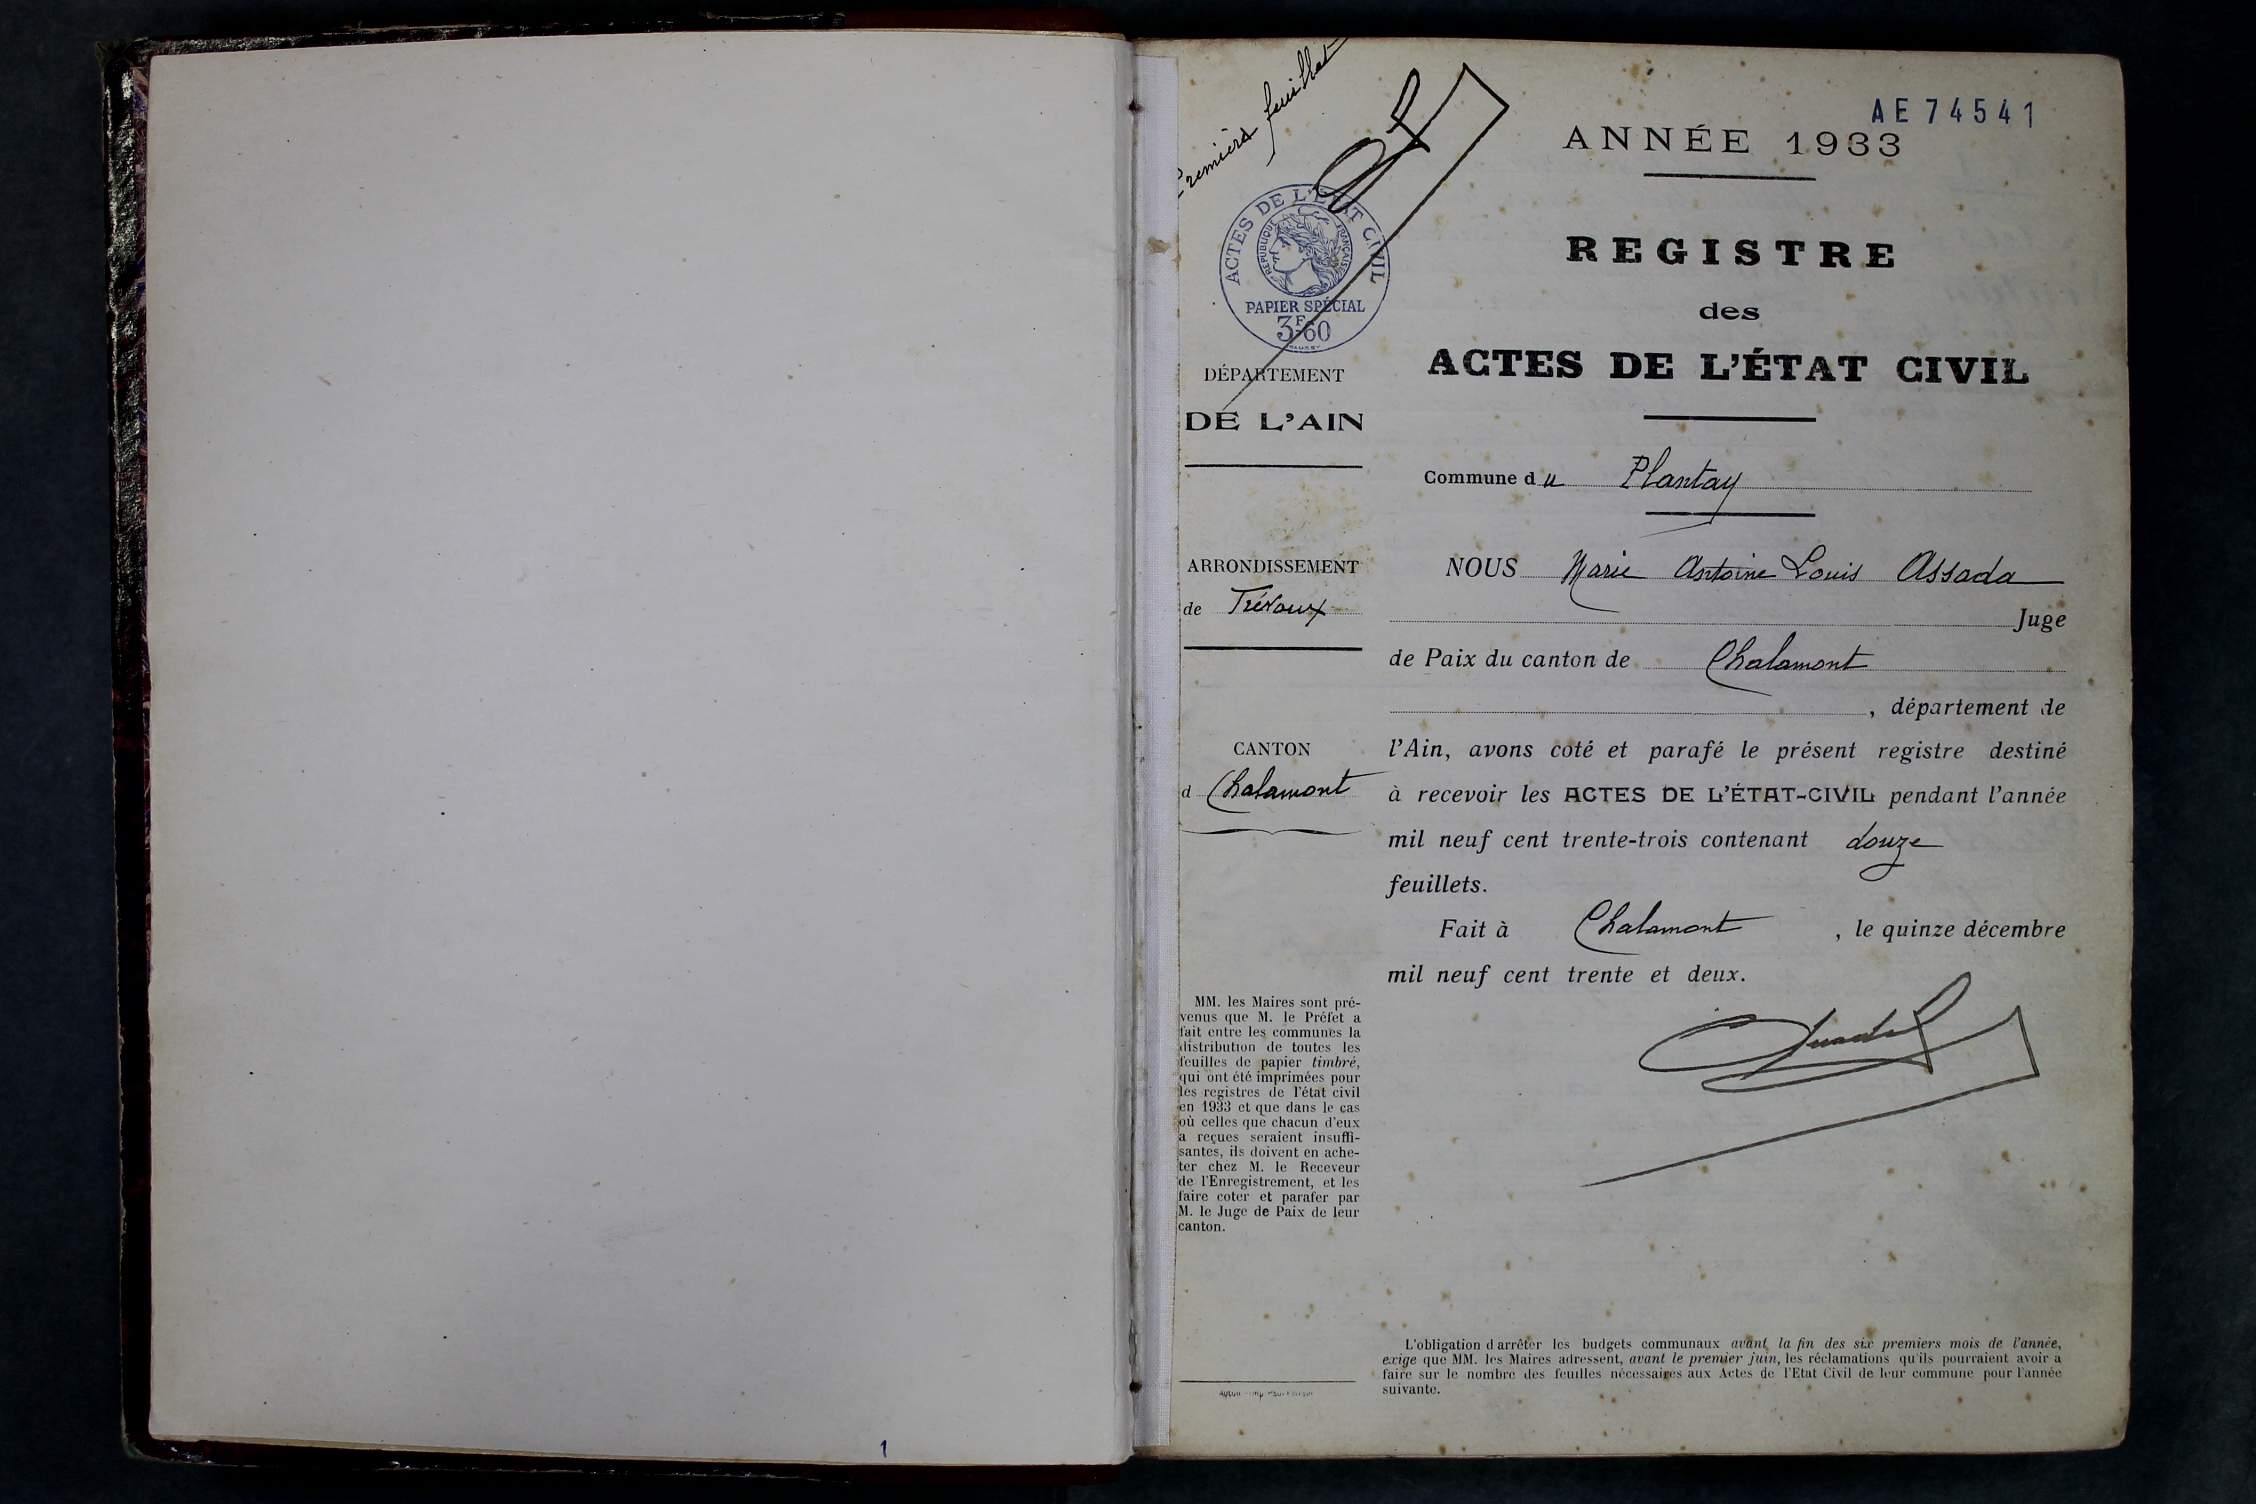 1
Premier feuillet
ACTES DE L'ÉTAT CIVIL
RÉPUBLIQUE FRANÇAISE
PAPIER SPÉCIAL
3F60
DÉPARTEMENT
DE L'AIN
ARRONDISSEMENT
de Trévoux
CANTON
d Chalamont
MM. les Maires sont pré-
venus que M. le Préfet a
fait entre les communes la
distribution de toutes les
feuilles de papier timbré,
qui ont été imprimées pour
les registres de l'état civil
en 1933 et que dans le cas
où celles que chacun d'eux
a reçues seraient insuffi-
santes, ils doivent en ache-
ter chez M. le Receveur
de l'Enregistrement, et les
faire coter et parafer par
M. le Juge de Paix de leur
canton.
AE74541
ANNÉE 1933
REGISTRE
des
ACTES DE L'ÉTAT CIVIL
Commune du Plantay
NOUS Marie Antoine Louis Assada
Juge
de Paix du canton de Chalamont
, département de
l'Ain, avons coté et parafé le présent registre destiné
à recevoir les ACTES DE L'ÉTAT-CIVIL pendant l'année
mil neuf cent trente-trois contenant douze
feuillets.
Fait à Chalamont , le quinze décembre
mil neuf cent trente et deux.
L'obligation d'arrêter les budgets communaux avant la fin des six premiers mois de l'année,
exige que MM. les Maires adressent, avant le premier juin, les réclamations qu'ils pourraient avoir à
faire sur le nombre des feuilles nécessaires aux Actes de l'Etat Civil de leur commune pour l'année
suivante.